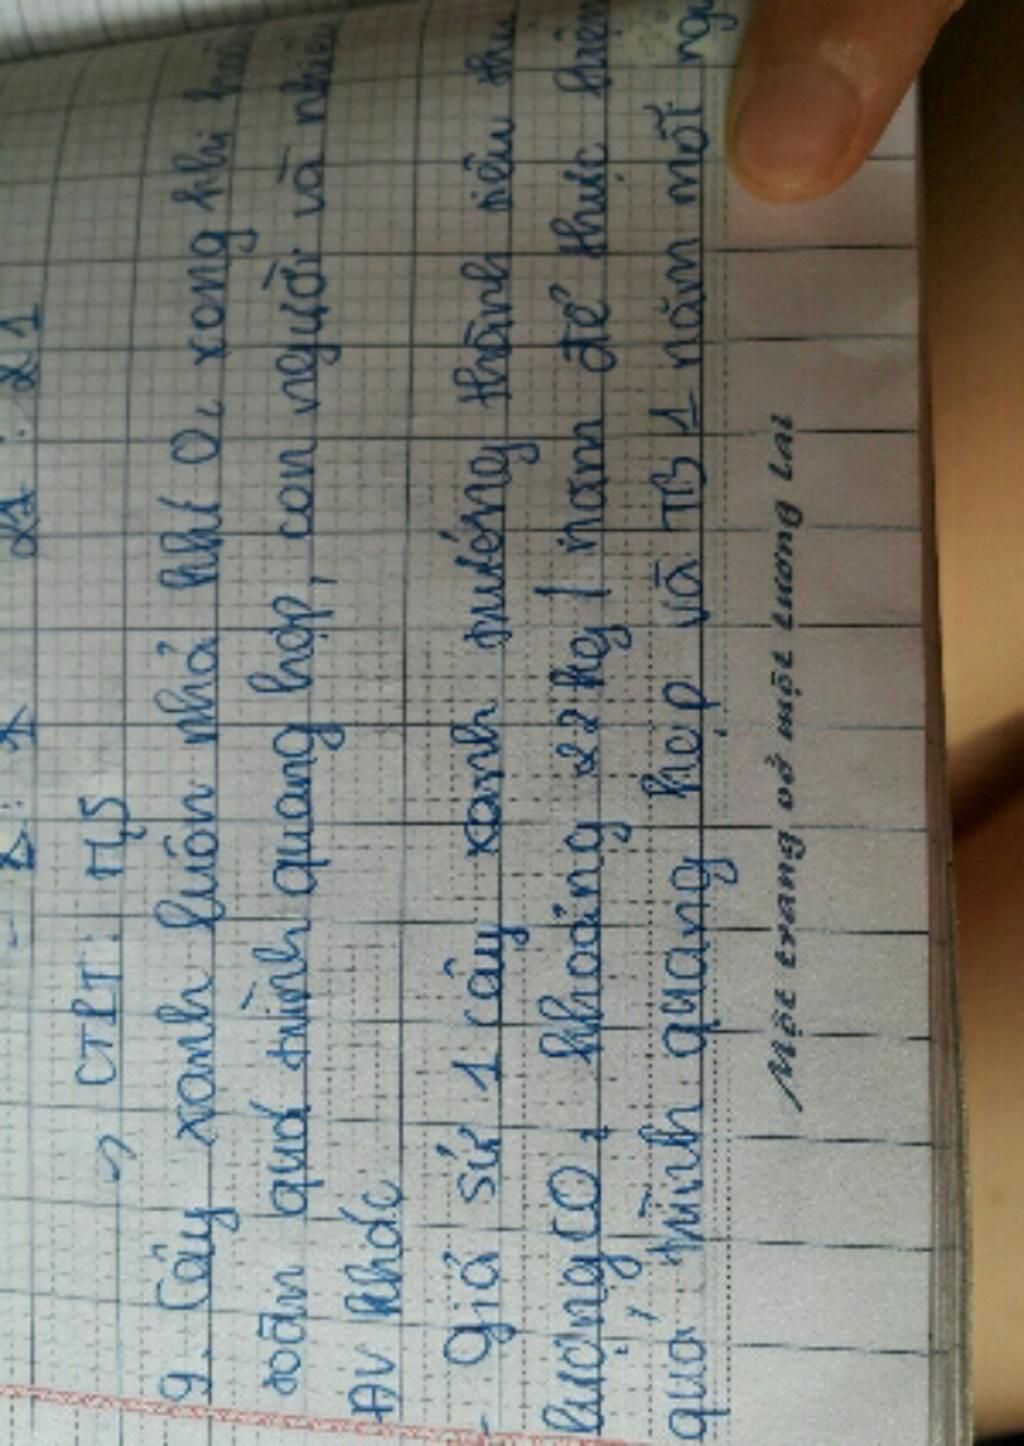 21 : 21
→ CTPT: H₂S
9. Cây xanh luôn nhả khí O₂ xong khi
toàn quá trình quang hợp, con người và
ĐV khác
- Giả sử 1 cây xanh trưởng thành tiêu thụ
lượng CO₂ khoảng 22 kg / năm để thực hiện
quá trình quang hợp và TB 1 năm mỗi
Một trang vở một tương lai